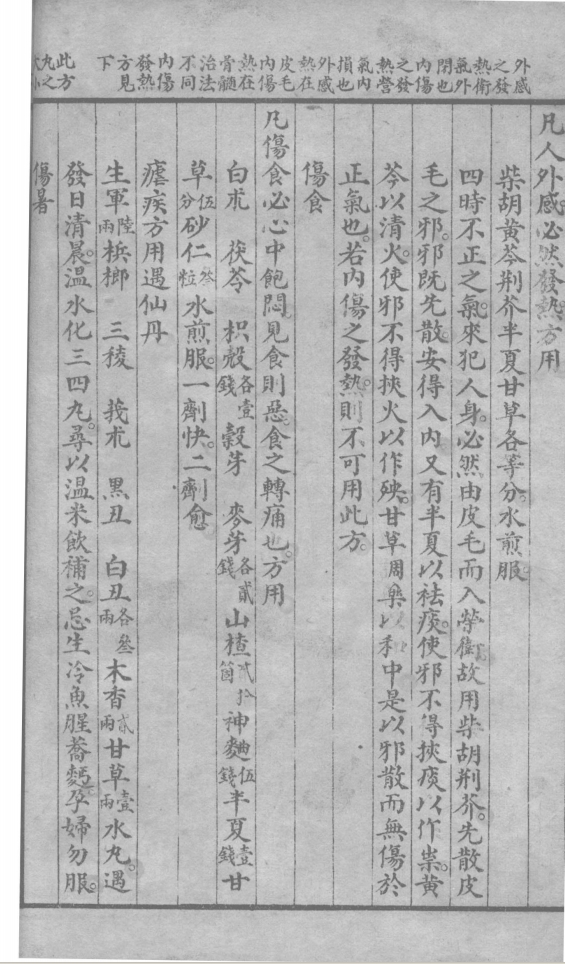 外感
之發
熱衛
氣外
閉也
內傷
之發
熱營
氣內
損也
外感
熱在
皮毛
內傷
熱在
骨髓
治法
不同
內傷
發熱
方見
下
此方
九之
凡人外感。必然發熱。方用
柴胡黃芩荆芥半夏甘草各等分。水煎服。
四時不正之氣。來犯人身。必然由皮毛而入榮衛。故用柴胡荆芥。先散皮
毛之邪。邪既先散。安得入內。又有半夏以祛痰。使邪不得挾痰以作祟。黃
芩以清火。使邪不得挾火以作殃。甘草周藥以和中。是以邪散而無傷於
正氣也。若內傷之發熱。則不可用此方。
傷食
凡傷食必心中飽悶。見食則惡。食之轉痛也。方用
白朮 茯苓 枳殼各壹錢 穀芽 麥芽各貳錢 山楂貳拾箇 神麯伍錢 半夏壹錢 甘
草伍分 砂仁叁粒 水煎服。一劑快。二劑愈
瘧疾方用遇仙丹
生軍陸兩 梹榔 三稜 莪朮 黑丑 白丑各叁兩 木香貳兩 甘草壹兩 水丸。遇
發日清晨。溫水化三四丸。尋以溫米飲補之。忌生冷魚腥蕎麫。孕婦勿服。
傷暑